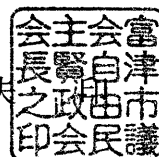 富津市議
会自由民
主賢政会
会長之印